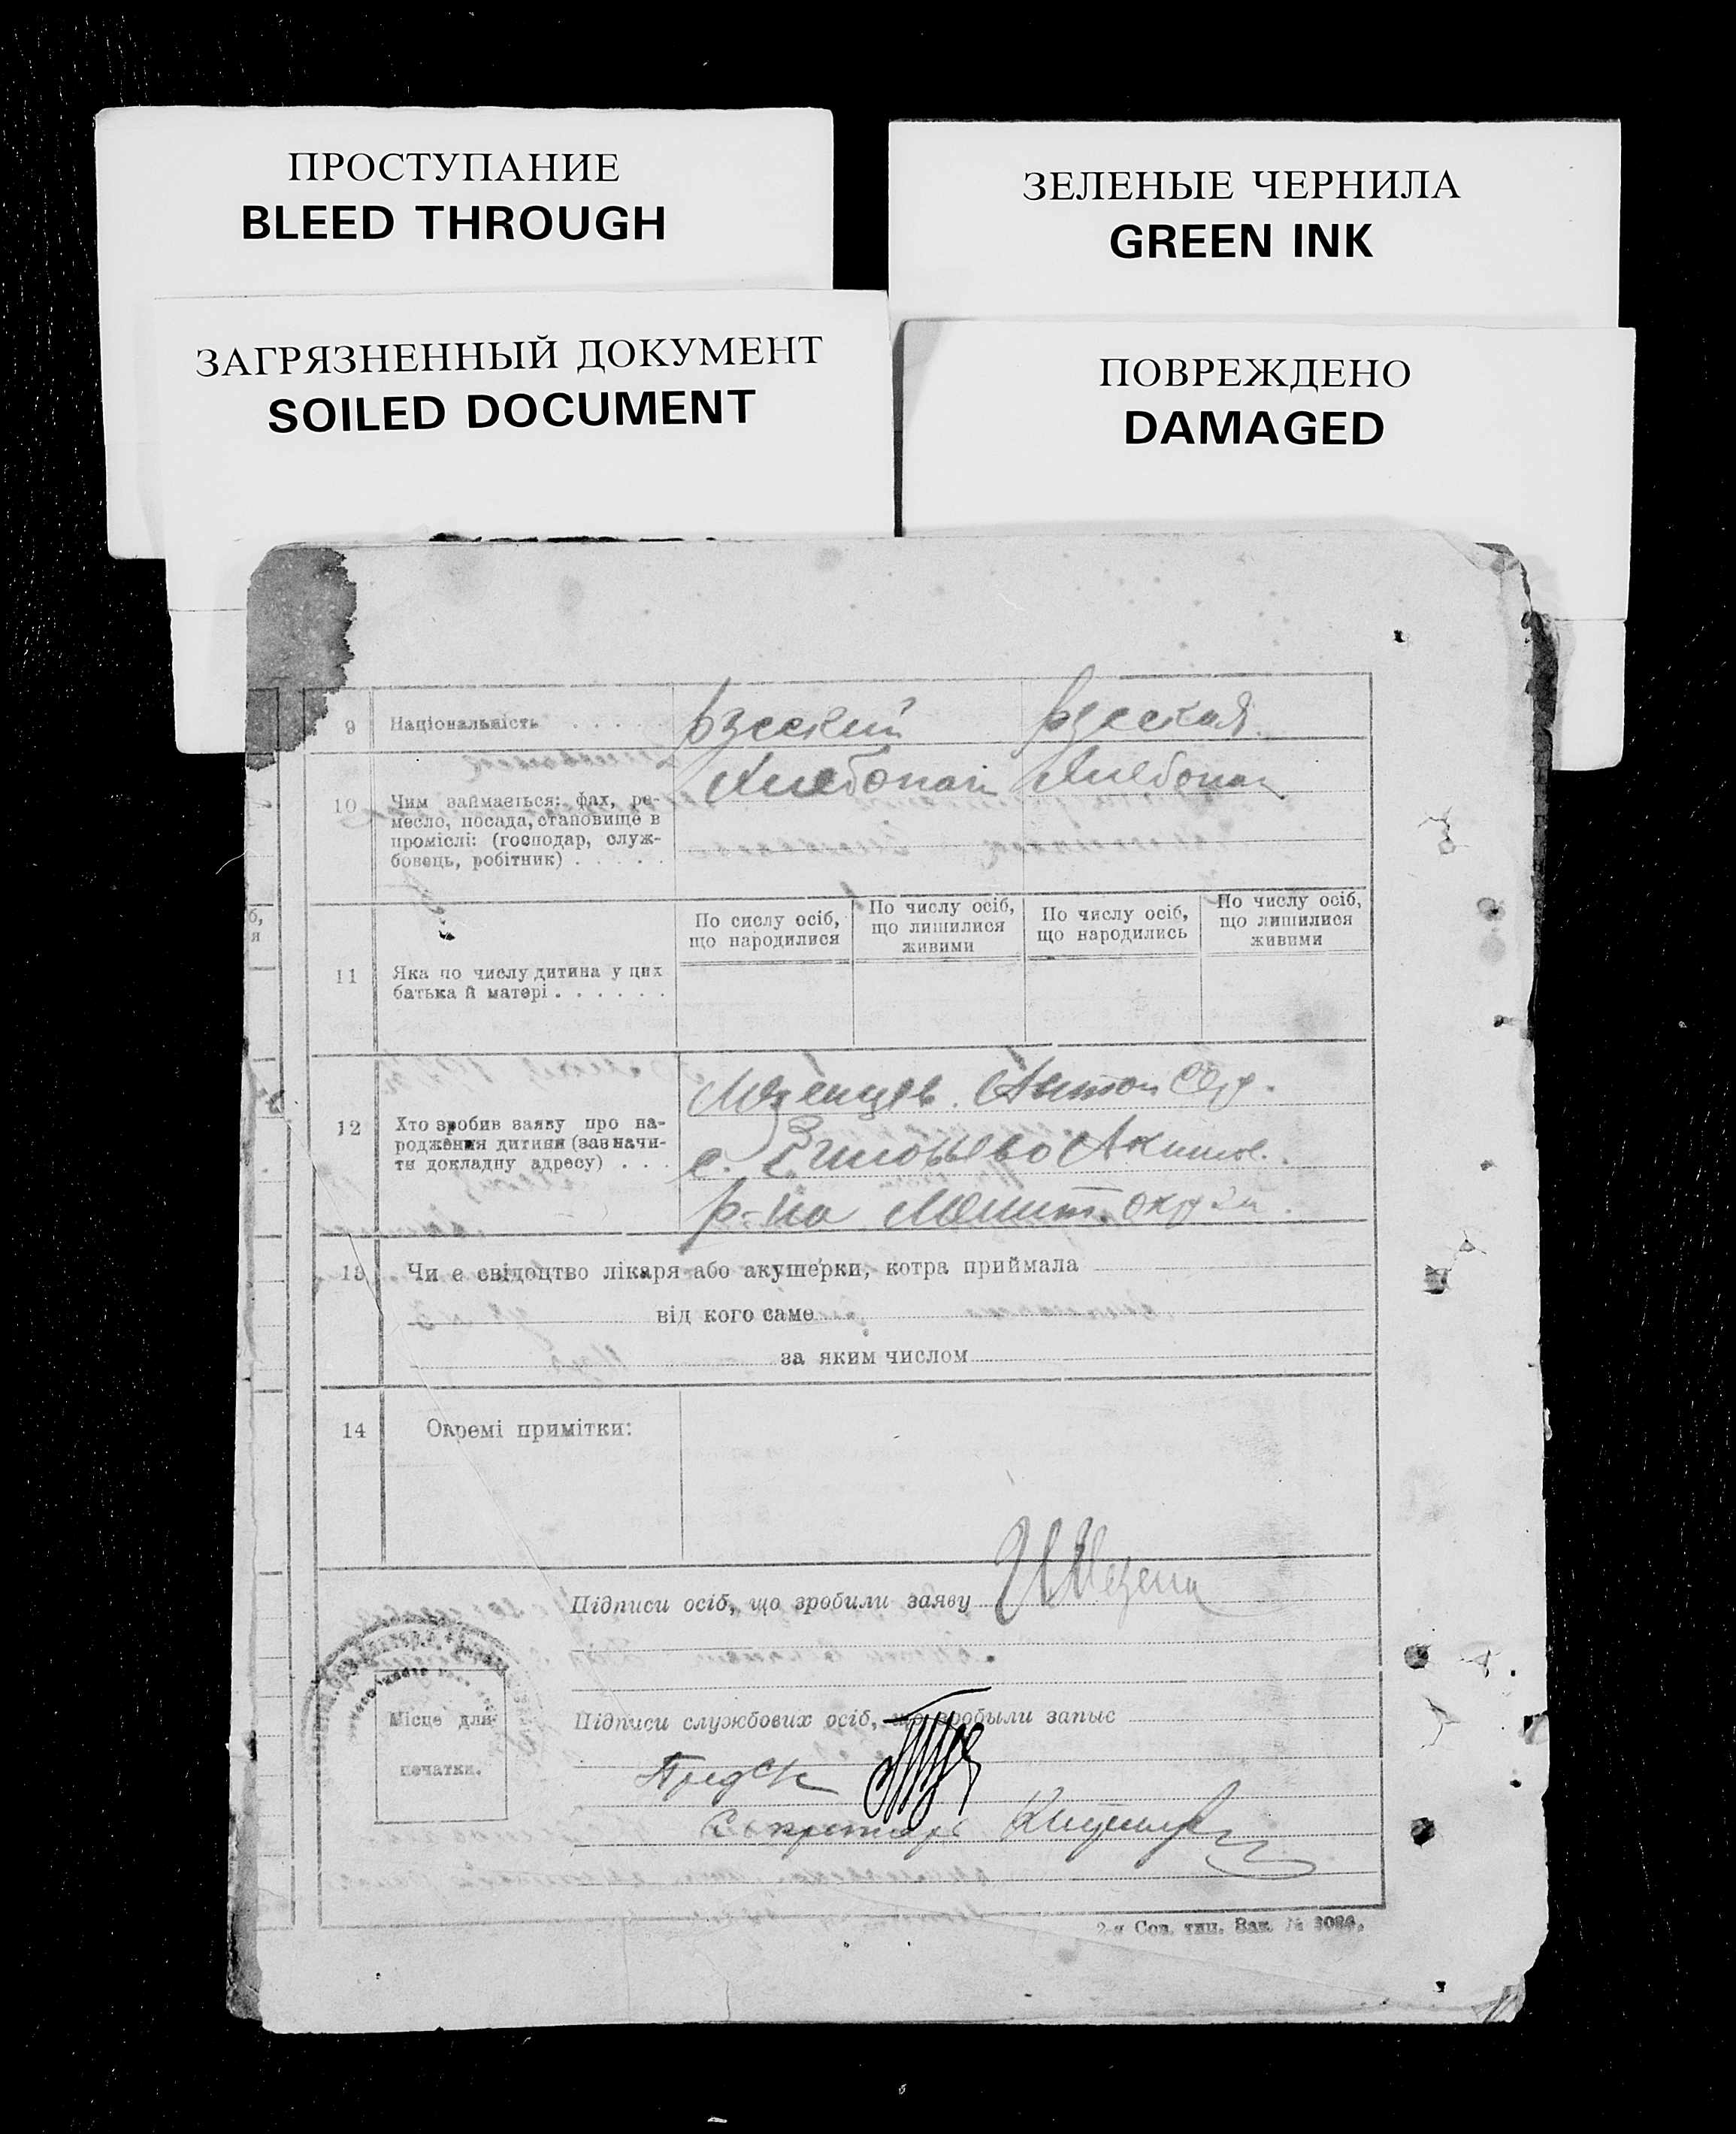 ПРОСТУПАНИЕ
BLEED THROUGH
ЗЕЛЕНЫЕ ЧЕРНИЛА
GREEN INK
ЗАГРЯЗНЕННЫЙ ДОКУМЕНТ
SOILED DOCUMENT
ПОВРЕЖДЕНО
DAMAGED
9 Національність . . . . . русский русская
10 Чим займається: фах, ре-
месло, посада, становище в
проміслі: (господар, служ-
бовець, робітник) . . . . .
Хлебопаш Хлебопаш
11 Яка по числу дитина у цих
батька й матері . . . . . .
По сислу осіб,
що народилися
По числу осіб,
що лишилися
живими
По числу осіб,
що народились
По числу осіб,
що лишилися
живими
б,
я
12 Хто зробив заяву про на-
родження дитини (зазначи-
ти докладну адресу) . . .
Мезенцев Антон
с. Зиновьево Акимов.
р-на Мелит. окру
13 Чи є свідоцтво лікаря або акушерки, котра приймала
від кого саме
за яким числом
14 Окремі примітки:
Підписи осіб, що зробили заяву
Місце для
печатки.
Підписи службових осіб, що зробыли запыс
Секретарь
2-я Сов. тип. Зак. №